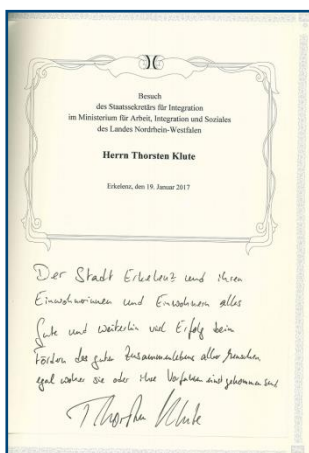 Besuch
des Staatssekretärs für Integration
im Ministerium für Arbeit, Integration und Soziales
des Landes Nordrhein-Westfalen
Herrn Thorsten Klute
Erkelenz, den 19. Januar 2017
Der Stadt Erkelenz und ihren
Einwohnerinnen und Einwohnern alles
Gute und weiterhin viel Erfolg beim
Fördern des guten Zusammenlebens aller Menschen
egal woher sie oder ihre Vorfahren einst gekommen sind
Thorsten Klute